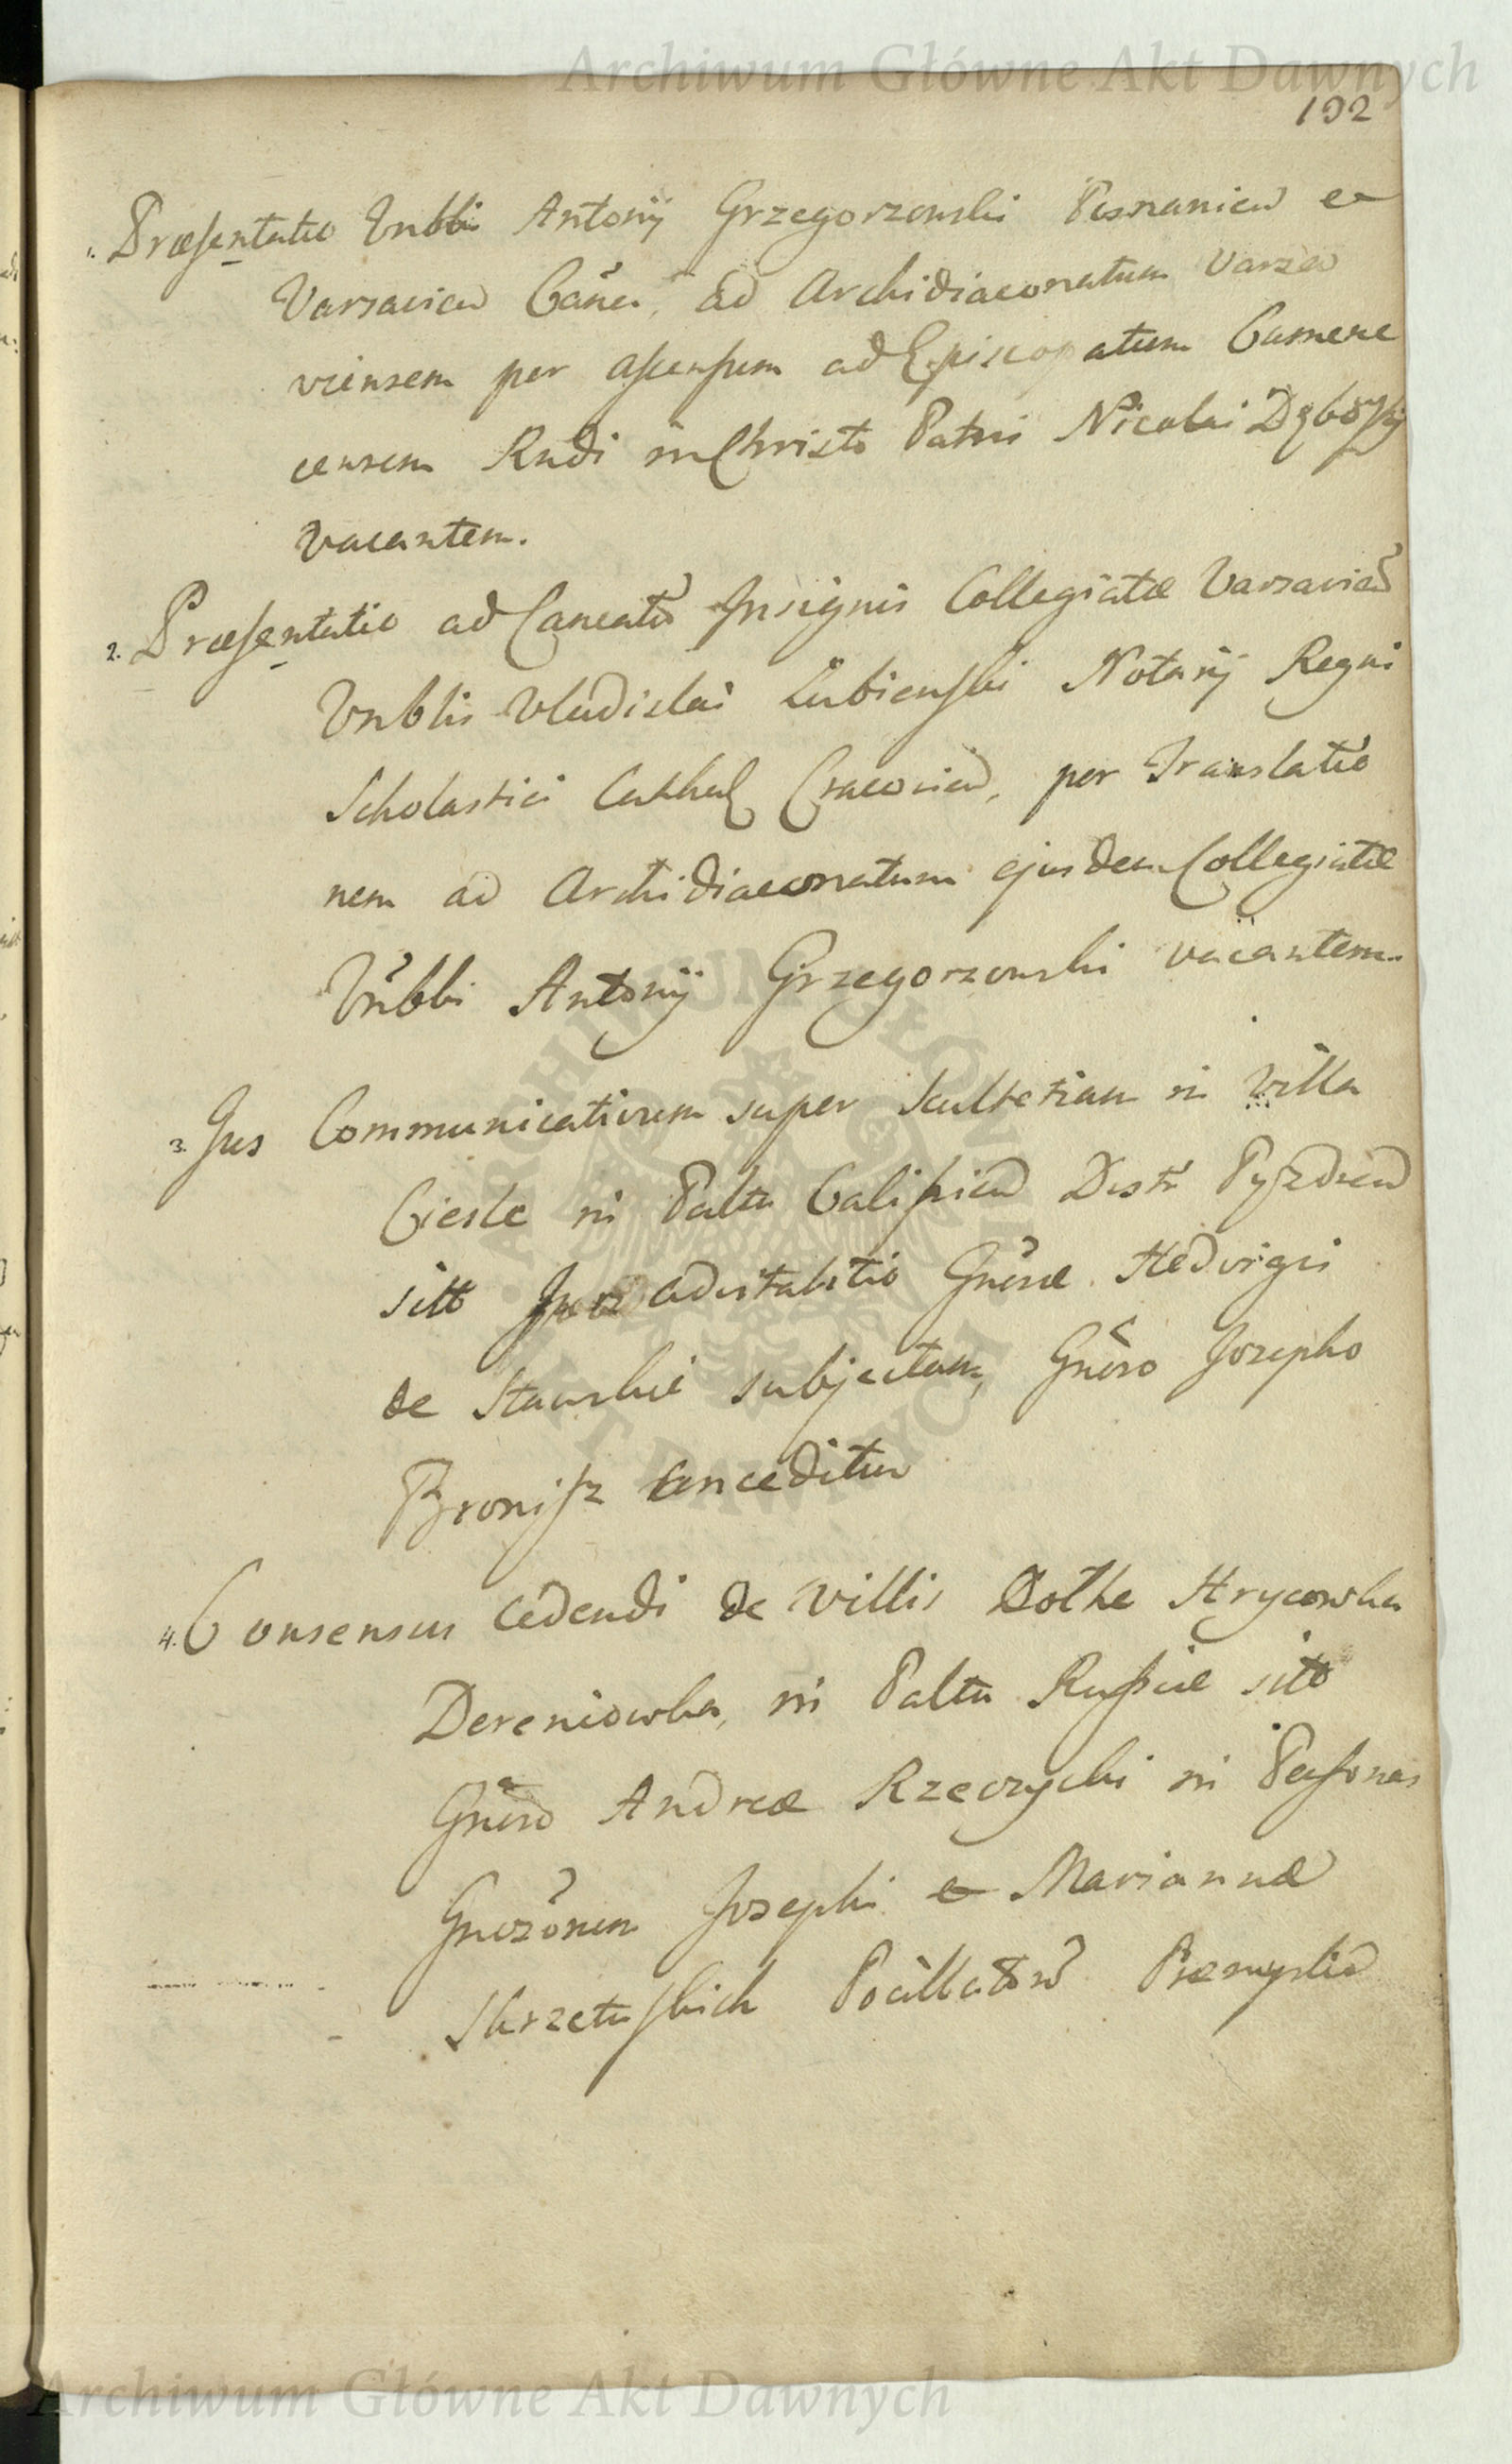 Archiwum Główne Akt Dawnych
192
1. Præsentatio Vnbbi Antonij Grzegorzewski Posnanien et
Varsavien Cañci, ad Archidiaconatum Varza
viensem per ascensum ad Episcopatum Camene
censem Rndi in Christo Patris Nicolai Dębowski
vacantem.
2. Præsentatio ad Cancatū Insignis Collegiatæ Varsavien
Vnblis Vladislai Lubienski Notarij Regni
Scholastici Cathal Cracovien, per Translatio
nem ad Archidiaconatum ejusdem Collegiatæ
Vnbbi Antonij Grzegorzewski vacantem.
3. Jus Communicativum super Scultetiam in Villa
Ciesle in Paltu Calissien Distr Pyzdren
sitt advitalitio Gnosæ Hedvigis
de Stawskie subjectam, Gnoso Josepho
Bronisz conceditur
4. Consensus cedendi de Villis Hrycowka
Dereniowka, in Paltu Russiæ sitt
Gñoso Andreæ Rzeczycki in Personas
Gnosōrum Josephi et Mariannæ
Skrzetuskich Pocillatorū Præmyslien
Archiwum Główne Akt Dawnych